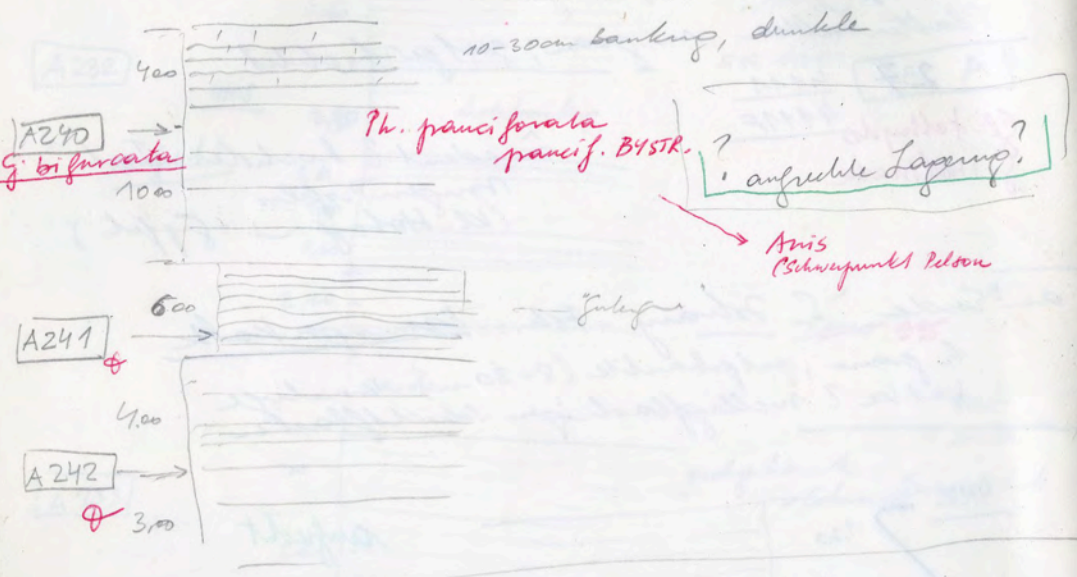 10-30cm bankig, dunkle
400
A240
G. bifurcata
Ph. pauciforata
paucif. BYSTR.
? aufrechte Lagerung ?
1000
Anis
(Schwerpunkt Pelson
600
A241
4.00
A242
3,00